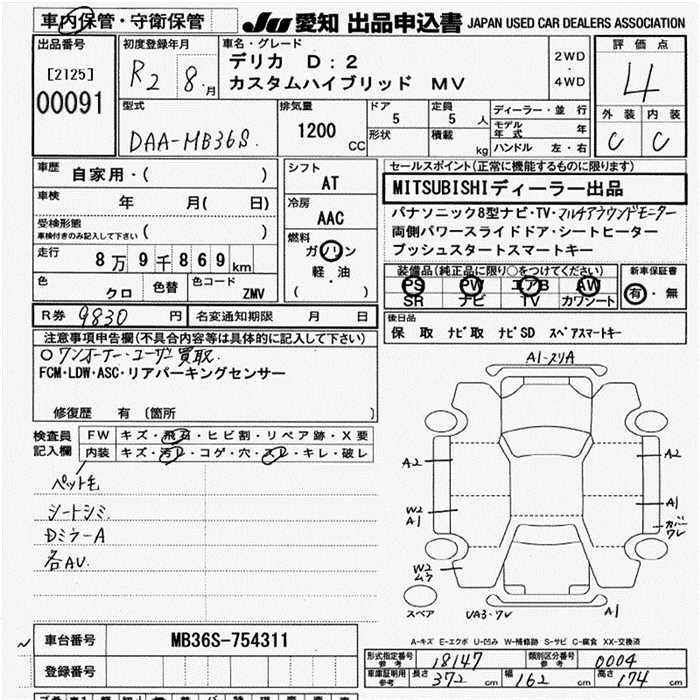 車内保管・守衛保管
JU 愛知 出品申込書 JAPAN USED CAR DEALERS ASSOCIATION
出品番号
[2125]
00091
初度登録年月
R2 8.月
車名・グレード
デリカ D:2
カスタムハイブリッド MV
2WD
・
4WD
評価点
4
外装 内装
C C
型式
DAA-MB36S.
排気量
1200
CC
ドア
5
定員
5 人
形状
積載
kg
ディーラー・並行
モデル年式 年
ハンドル 左・右
車歴
自家用・( )
車検
年 月( 日)
受検形態
車検付きのみ記入して下さい ( )
走行
8万9千869km
色
クロ
色替
色コード
ZMV
シフト
AT
冷房
AAC
燃料
ガソリン
軽・油
( )
セールスポイント(正常に機能するものに限ります)
MITSUBISHIディーラー出品
パナソニック8型ナビ・TV・マルチアラウンドモニター
両側パワースライドドア・シートヒーター
プッシュスタートスマートキー
装備品(純正品に限り○をつけてください)
PS PW エアB AW
SR ナビ TV カワシート
新車保証書
有・無
R券 9830 円
名変通知期限 月 日
後日品
保 取 ナビ取 ナビSD スペアスマートキー
注意事項申告欄(不具合内容等は具体的に記入して下さい)
○ワンオーナー・ユーザー買取.
FCM・LDW・ASC・リアパーキングセンサー
修復歴 有 (箇所 )
検査員
記入欄
FW キズ・飛石・ヒビ割・リペア跡・X要
内装 キズ・汚レ・コゲ・穴・スレ・キレ・破レ
ペット毛
シートシミ.
Dミラー A
各AU.
A1-スリA
A2
A2
W2
A1
A1
カバー
ワレ
W2
ムラ
スペア
UA3・ワレ
A1
A-キズ E-エクボ U-凹み W-補修跡 S-サビ C-腐食 XX-交換済
車台番号 MB36S-754311
登録番号
形式指定番号
参考
18147
類別区分番号
参考
0004
車庫証明用
参考
長さ 372 cm
幅 162 cm
高さ 174 cm